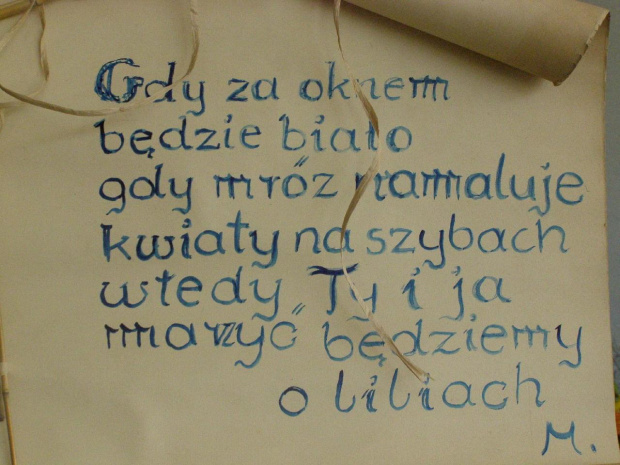 Gdy za oknem
będzie biało
gdy mróz namaluje
kwiaty na szybach
wtedy Ty i ja
marzyć będziemy
o liliach
M.